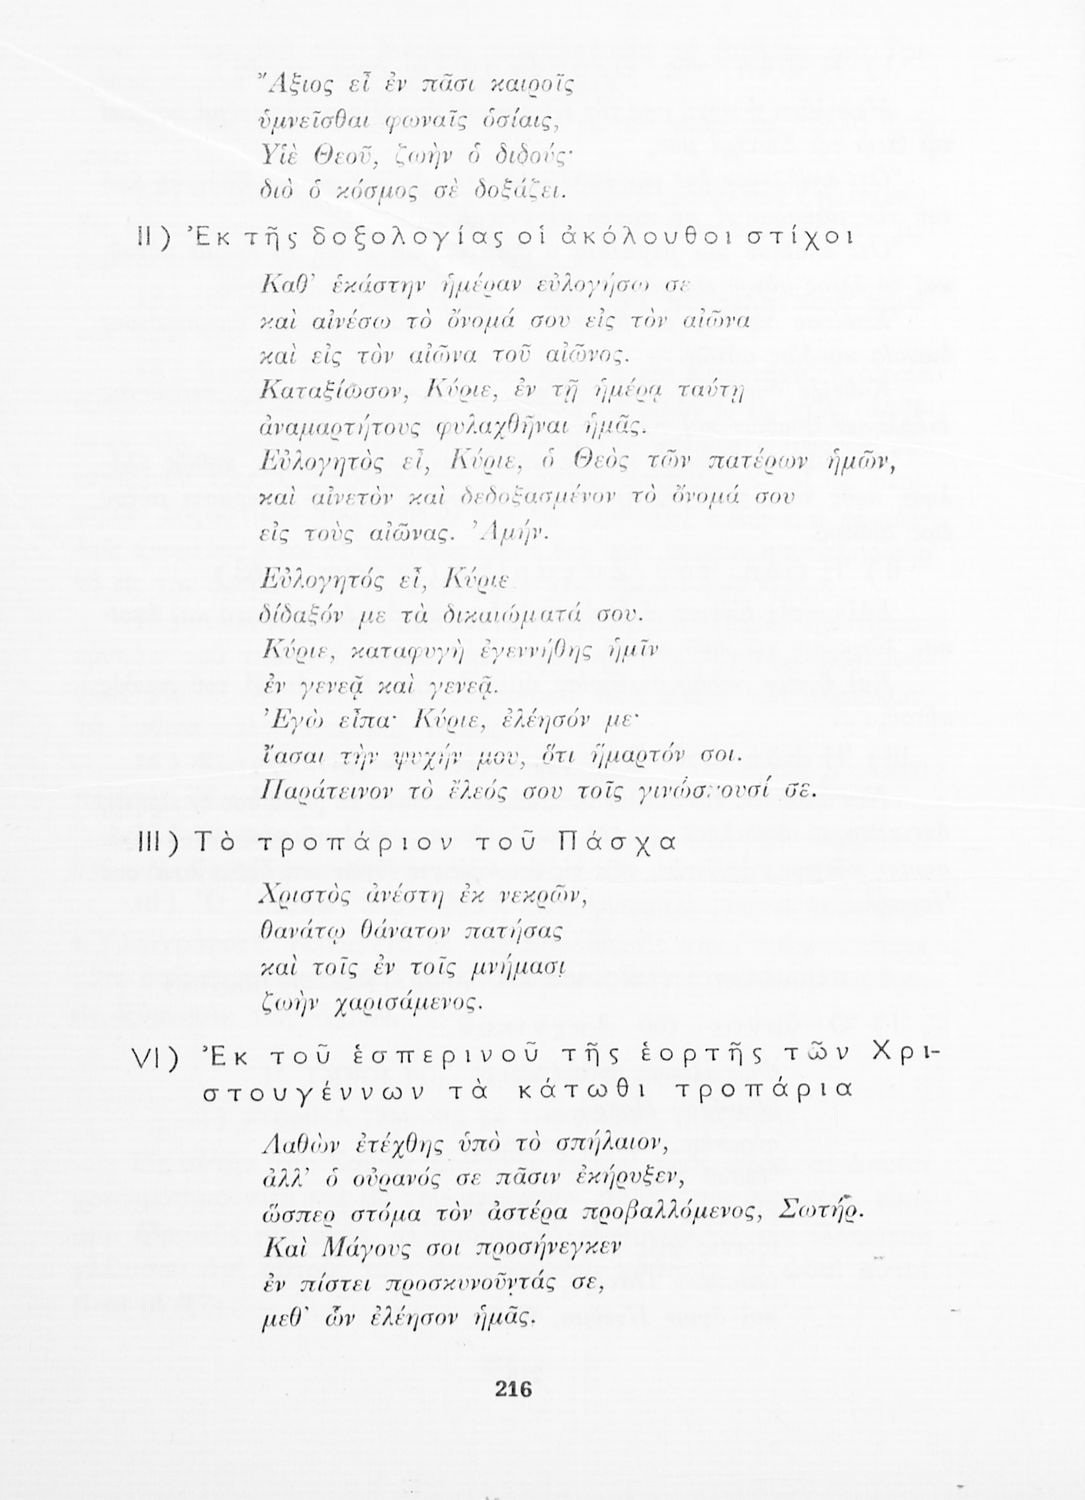 Ἄξιος εἶ ἐν πᾶσι καιροῖς
ὑμνεῖσθαι φωναῖς ὁσίαις,
Υἱὲ Θεοῦ, ζωὴν ὁ διδούς·
διὸ ὁ κόσμος σὲ δοξάζει.
II) Ἐκ τῆς δοξολογίας οἱ ἀκόλουθοι στίχοι
Καθ' ἑκάστην ἡμέραν εὐλογήσω σε
καὶ αἰνέσω τὸ ὄνομά σου εἰς τὸν αἰῶνα
καὶ εἰς τὸν αἰῶνα τοῦ αἰῶνος.
Καταξίωσον, Κύριε, ἐν τῇ ἡμέρᾳ ταύτῃ
ἀναμαρτήτους φυλαχθῆναι ἡμᾶς.
Εὐλογητὸς εἶ, Κύριε, ὁ Θεὸς τῶν πατέρων ἡμῶν,
καὶ αἰνετὸν καὶ δεδοξασμένον τὸ ὄνομά σου
εἰς τοὺς αἰῶνας. Ἀμήν.
Εὐλογητός εἶ, Κύριε
δίδαξόν με τὰ δικαιώματά σου.
Κύριε, καταφυγὴ ἐγεννήθης ἡμῖν
ἐν γενεᾷ καὶ γενεᾷ.
Ἐγὼ εἶπα· Κύριε, ἐλέησόν με·
ἴασαι τὴν ψυχήν μου, ὅτι ἥμαρτόν σοι.
Παράτεινον τὸ ἔλεός σου τοῖς γινώσκουσί σε.
III) Τὸ τροπάριον τοῦ Πάσχα
Χριστὸς ἀνέστη ἐκ νεκρῶν,
θανάτῳ θάνατον πατήσας
καὶ τοῖς ἐν τοῖς μνήμασι
ζωὴν χαρισάμενος.
VI) Ἐκ τοῦ ἑσπερινοῦ τῆς ἑορτῆς τῶν Χρι-
στουγέννων τὰ κάτωθι τροπάρια
Λαθὼν ἐτέχθης ὑπὸ τὸ σπήλαιον,
ἀλλ' ὁ οὐρανός σε πᾶσιν ἐκήρυξεν,
ὥσπερ στόμα τὸν ἀστέρα προβαλλόμενος, Σωτήρ.
Καὶ Μάγους σοι προσήνεγκεν
ἐν πίστει προσκυνοῦντάς σε,
μεθ' ὧν ἐλέησον ἡμᾶς.
216